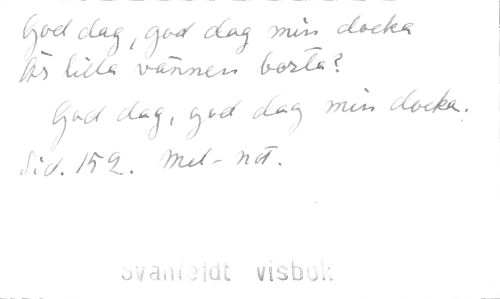 God dag, god dag min docka
är lilla vännen borta?
God dag, god dag min docka.
Sid. 152. Mel-not.
Svanfeldt visbok